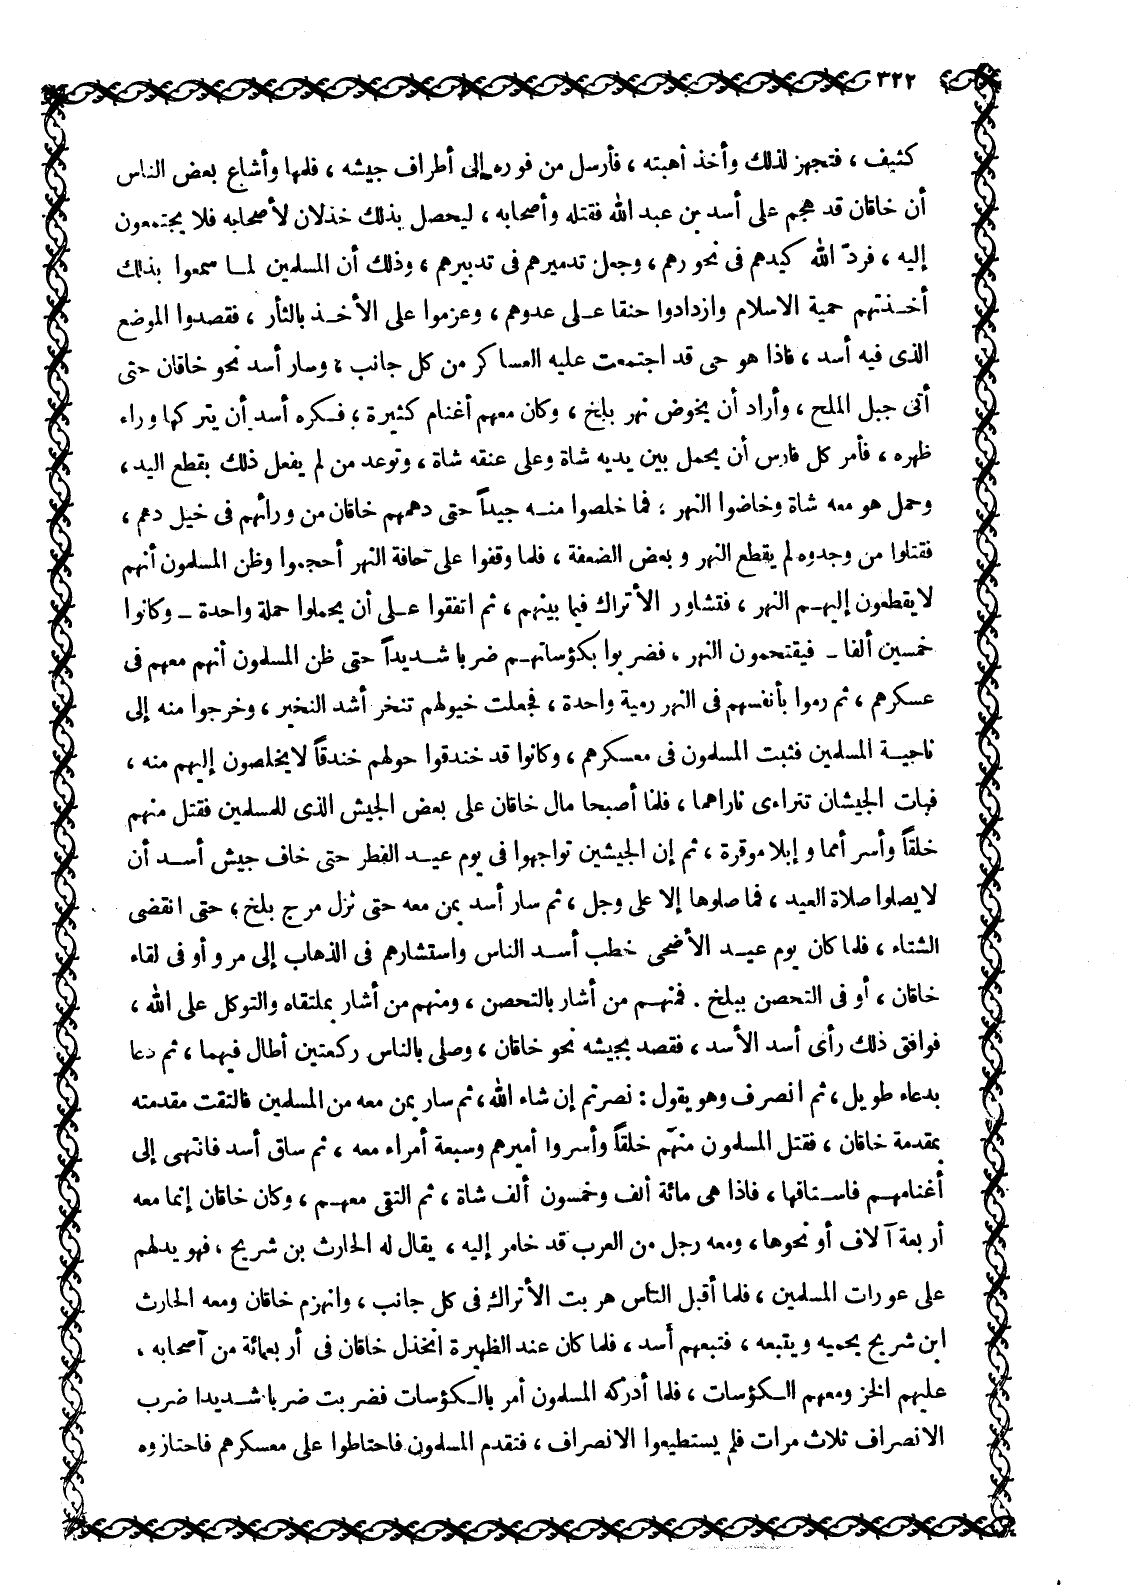 ٣٢٢
كثيف ، فتجهز لذلك وأخذ أهبته ، فأرسل من فوره إلى أطراف جيشه ، فلمها وأشاع بعض الناس
أن خاقان قد هجم على أسد بن عبد الله فقتله وأصحابه ، ليحصل بذلك خذلان لأصحابه فلا يجتمعون
إليه ، فردّ الله كيدهم فى نحورهم ، وجعل تدميرهم فى تدبيرهم ، وذلك أن المسلمين لما سمعوا بذلك
أخذتهم حمية الاسلام وازدادوا حنقا على عدوهم ، وعزموا على الأخذ بالثأر ، فقصدوا الموضع
الذى فيه أسد ، فاذا هو حى قد اجتمعت عليه العساكر من كل جانب ، وسار أسد نحو خاقان حتى
أتى جبل الملح ، وأراد أن يخوض نهر بلخ ، وكان معهم أغنام كثيرة ، فكره أسد أن يتركها وراء
ظهره ، فأمر كل فارس أن يحمل بين يديه شاة وعلى عنقه شاة ، وتوعد من لم يفعل ذلك بقطع اليد ،
وحمل هو معه شاة وخاضوا النهر ، فما خلصوا منه جيداً حتى دهمهم خاقان من ورائهم فى خيل دهم ،
فقتلوا من وجدوه لم يقطع النهر وبعض الضعفة ، فلما وقفوا على حافة النهر أحجموا وظن المسلمون أنهم
لا يقطعون إليهم النهر ، فتشاور الأتراك فيما بينهم ، ثم اتفقوا على أن يحملوا حملة واحدة ـ وكانوا
خمسين ألفا ـ فيقتحمون النهر ، فضربوا بكؤساتهم ضربا شديداً حتى ظن المسلمون أنهم معهم فى
عسكرهم ، ثم رموا بأنفسهم فى النهر رمية واحدة ، فجعلت خيولهم تنخر أشد النخير ، وخرجوا منه إلى
ناحية المسلمين فثبت المسلمون فى معسكرهم ، وكانوا قد خندقوا حولهم خندقاً لا يخلصون إليهم منه ،
فبات الجيشان تتراءى ناراهما ، فلما أصبحا مال خاقان على بعض الجيش الذى للمسلمين فقتل منهم
خلقاً وأسر أمما وإبلا موقرة ، ثم إن الجيشين تواجهوا فى يوم عيد الفطر حتى خاف جيش أسد أن
لا يصلوا صلاة العيد ، فما صلوها إلا على وجل ، ثم سار أسد بمن معه حتى نزل مرج بلخ ، حتى انقضى
الشتاء ، فلما كان يوم عيد الأضحى خطب أسد الناس واستشارهم فى الذهاب إلى مرو أو فى لقاء
خاقان ، أو فى التحصن ببلخ . فمنهم من أشار بالتحصن ، ومنهم من أشار بملتقاه والتوكل على الله ،
فوافق ذلك رأى أسد الأسد ، فقصد بجيشه نحو خاقان ، وصلى بالناس ركعتين أطال فيهما ، ثم دعا
بدعاء طويل ، ثم انصرف وهو يقول : نصرتم إن شاء الله ، ثم سار بمن معه من المسلمين فالتقت مقدمته
بمقدمة خاقان ، فقتل المسلمون منهم خلقاً وأسروا أميرهم وسبعة أمراء معه ، ثم ساق أسد فانتهى إلى
أغنامهم فاستاقها ، فاذا هى مائة ألف وخمسون ألف شاة ، ثم التقى معهم ، وكان خاقان إنما معه
أربعة آلاف أو نحوها ، ومعه رجل من العرب قد خامر إليه ، يقال له الحارث بن شريح ، فهو يدلهم
على عورات المسلمين ، فلما أقبل الناس هربت الأتراك فى كل جانب ، وانهزم خاقان ومعه الحارث
ابن شريح يحميه ويتبعه ، فتبعهم أسد ، فلما كان عند الظهيرة انخذل خاقان فى أربعمائة من أصحابه ،
عليهم الخز ومعهم الكؤسات ، فلما أدركه المسلمون أمر بالكؤسات فضربت ضربا شديدا ضرب
الانصراف ثلاث مرات فلم يستطيعوا الانصراف ، فتقدم المسلمون فاحتاطوا على معسكرهم فاحتازوه